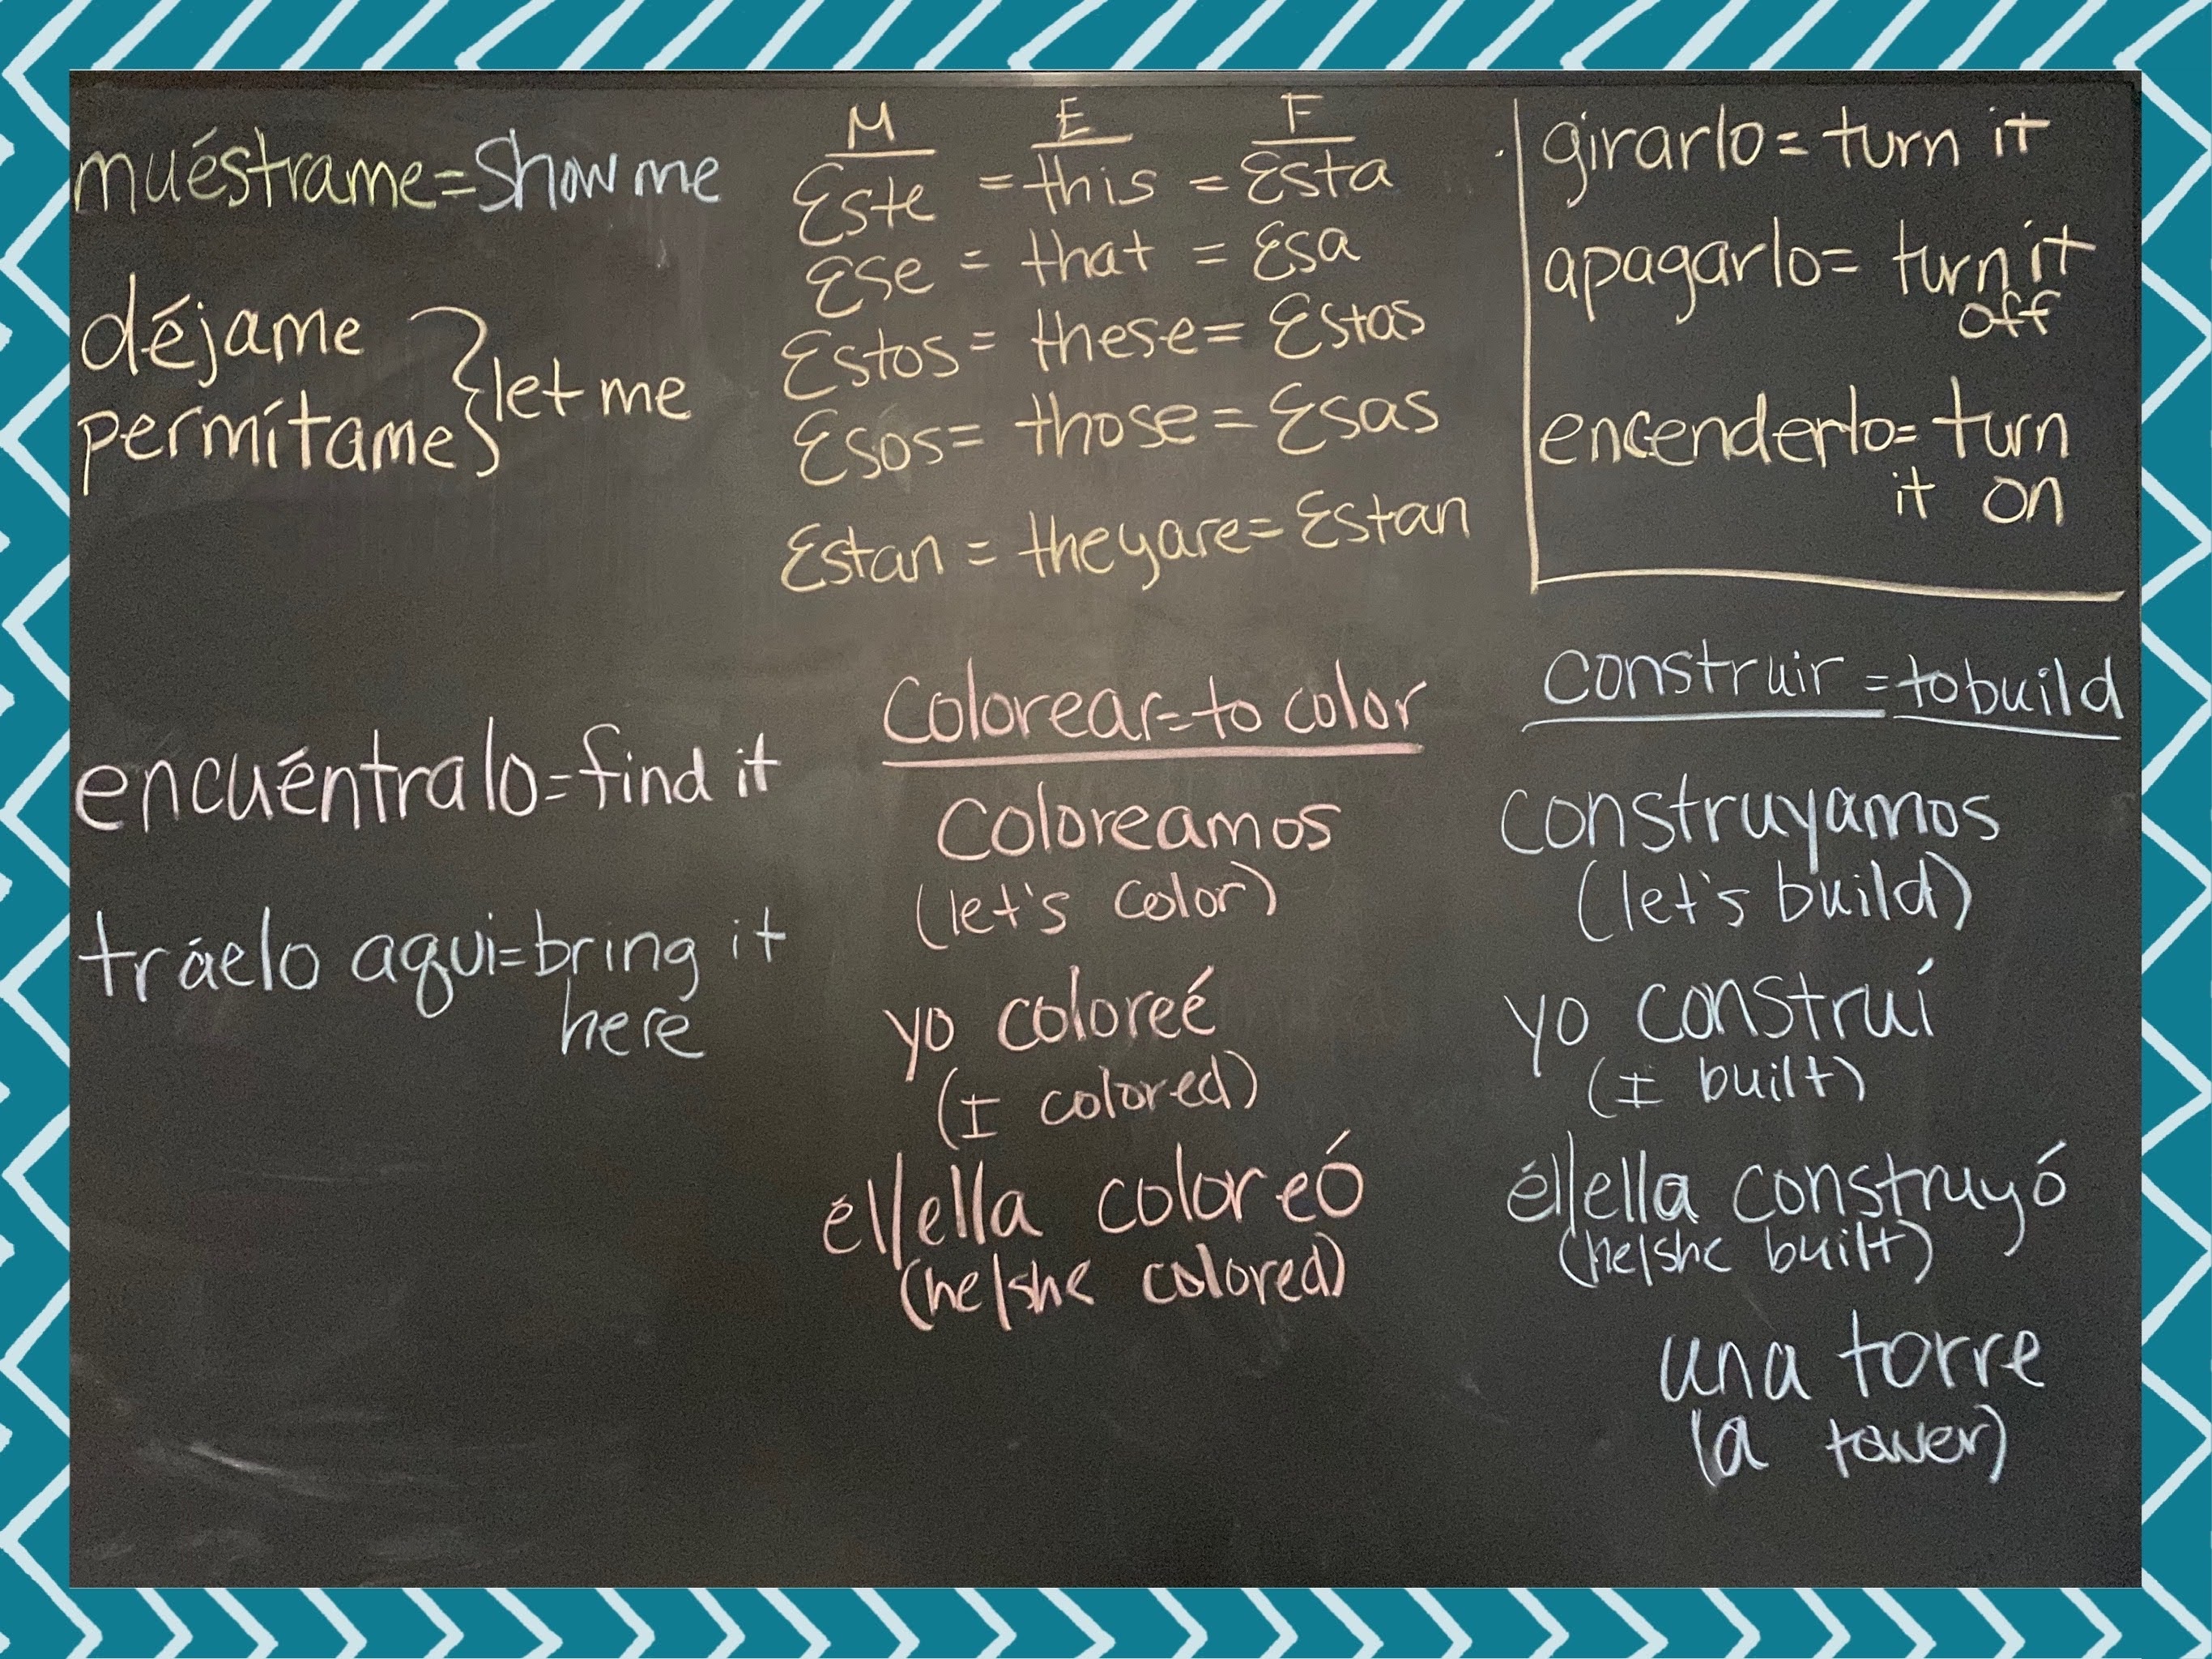 muéstrame=Show me
déjame
permítame
}let me
encuéntralo=find it
tráelo aqui=bring it
here
M E F
Este = this = Esta
Ese = that = Esa
Estos= these= Estas
Esos= those= Esas
Estan = they are= Estan
Colorear=to color
Coloreamos
(let's color)
yo coloreé
(I colored)
él/ella coloreó
(he/she colored)
girarlo= turn it
apagarlo= turn it
off
encenderlo= turn
it on
construir = to build
construyamos
(let's build)
yo construí
(I built)
él/ella construyó
(he/she built)
una torre
(a tower)